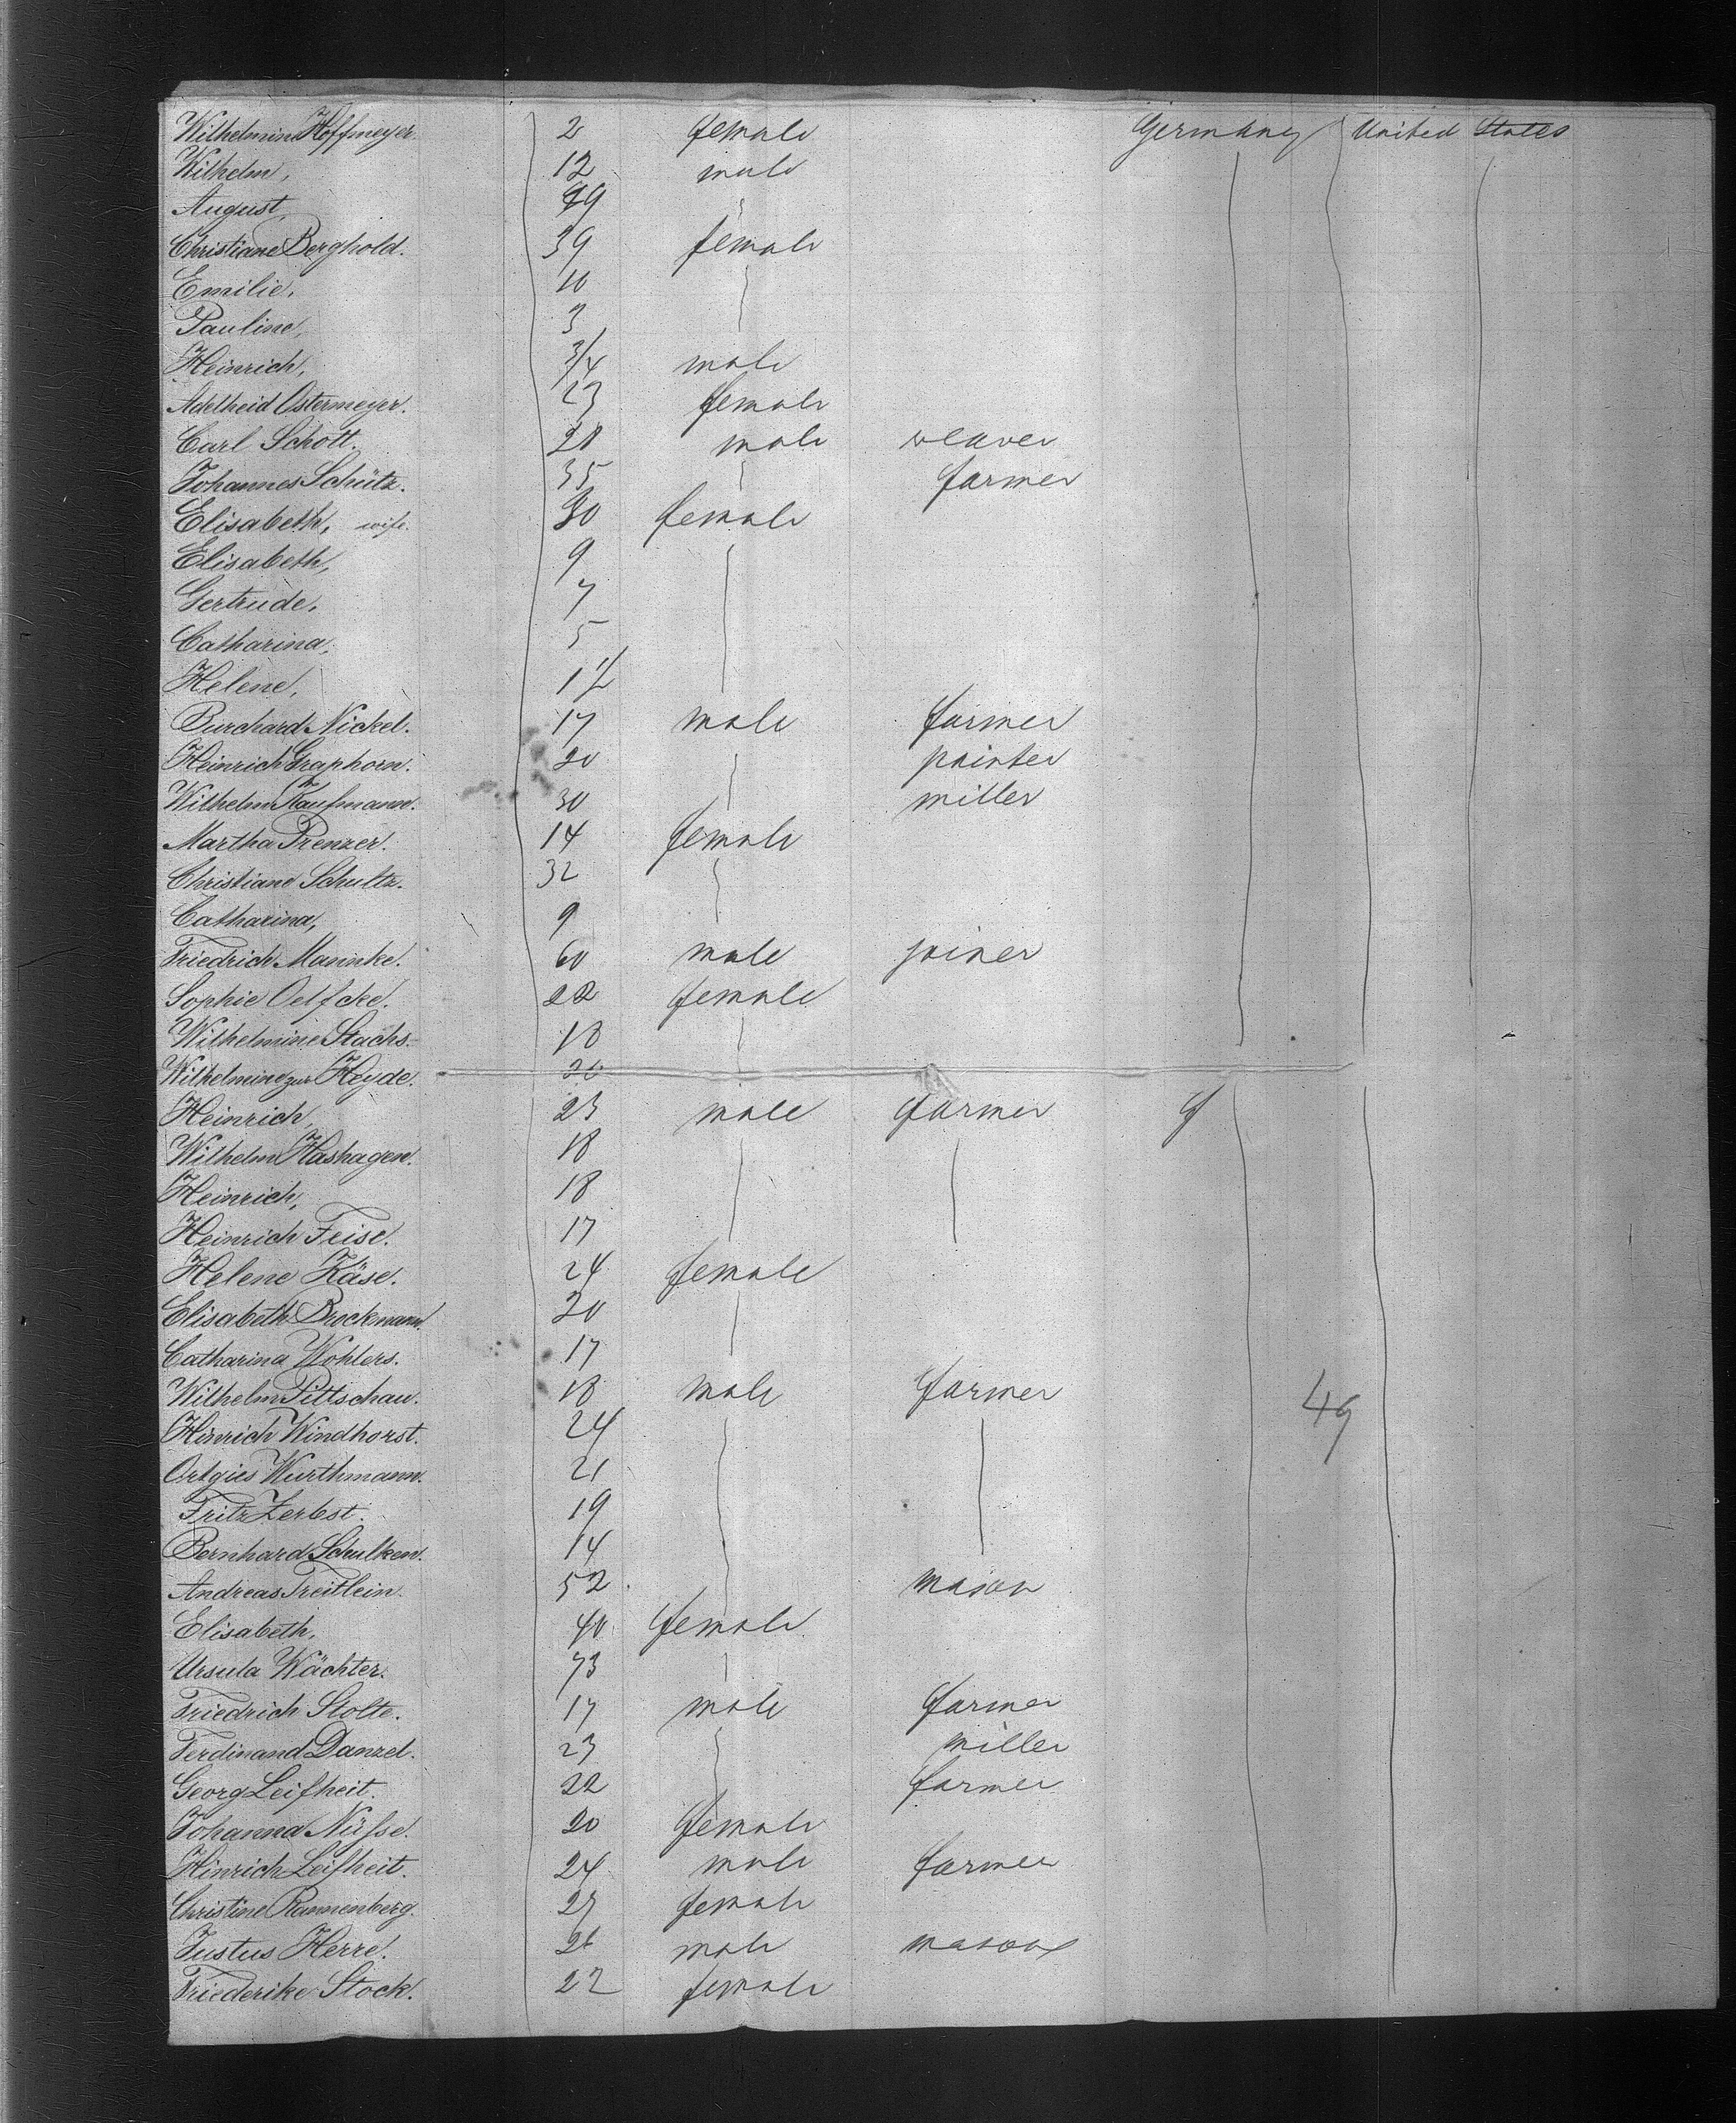 Wilhelmine Hoffmeyer. 2 female Germany United States
Wilhelm, 12 male
August, 49
Christiane Berghold. 39 female
Emilie, 10
Pauline, 3
Heinrich, 3/4 male
Adelheid Ostermeyer. 23 female
Carl Schott. 28 male weaver
Johannes Schütz. 35 farmer
Elisabeth, wife. 30 female
Elisabeth, 9
Gertrude, 7
Catharina, 5
Helene, 1 1/2
Burchard Nickel. 17 male farmer
Heinrich Graphorn. 20 painter
Wilhelm Kaufmann. 30 miller
Martha Prenzer. 14 female
Christiane Schultz. 32
Catharina, 9
Friedrich Mannke. 60 male joiner
Sophie Oelfcke. 22 female
Wilhelmine Stachs. 18
Wilhelmine zur Heyde. 20
Heinrich, 23 male farmer G
Wilhelm Hashagen. 18
Heinrich, 18
Heinrich Feise. 17
Helene Käse. 24 female
Elisabeth Brockmann. 20
Catharina Wohlers. 17
Wilhelm Pittschau. 18 male farmer 49
Hinrich Windhorst. 24
Ortgies Wurthmann. 21
Fritz Zerbst. 19
Bernhard Schulken. 14
Andreas Treitlein. 52 mason
Elisabeth, 40 female
Ursula Wächter. 73
Friedrich Stolte. 17 male farmer
Ferdinand Danzel. 23 miller
Georg Leifheit. 22 farmer
Johanna Nüsse. 20 female
Hinrich Leifheit. 24 male farmer
Christine Rannenberg. 27 female
Justus Herre. 26 male mason
Friederike Stock. 22 female